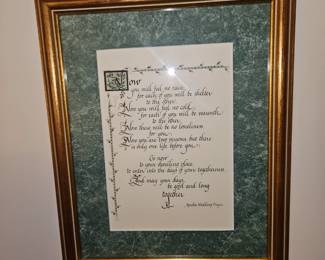 Now
you will feel no rain,
for each of you will be shelter
to the other.
Now you will feel no cold,
for each of you will be warmth
to the other.
Now there will be no loneliness
for you,
Now you are two persons but there
is only one life before you.
Go now
to your dwelling place
to enter into the days of your togetherness.
And may your days
be good and long
together.
Apache Wedding Prayer